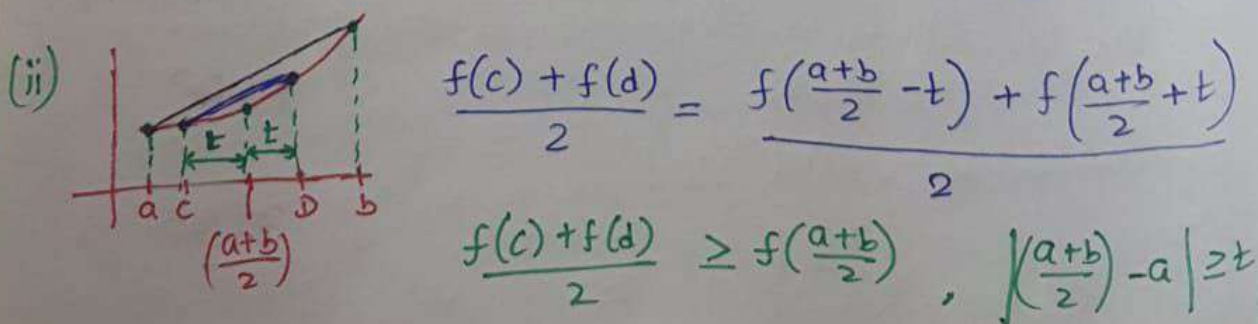 (ii)
t t
a c D b
(a+b/2)
f(c) + f(d) / 2 = f(a+b/2 - t) + f(a+b/2 + t) / 2
f(c) + f(d) / 2 ≥ f(a+b/2) , |(a+b/2) - a| ≥ t